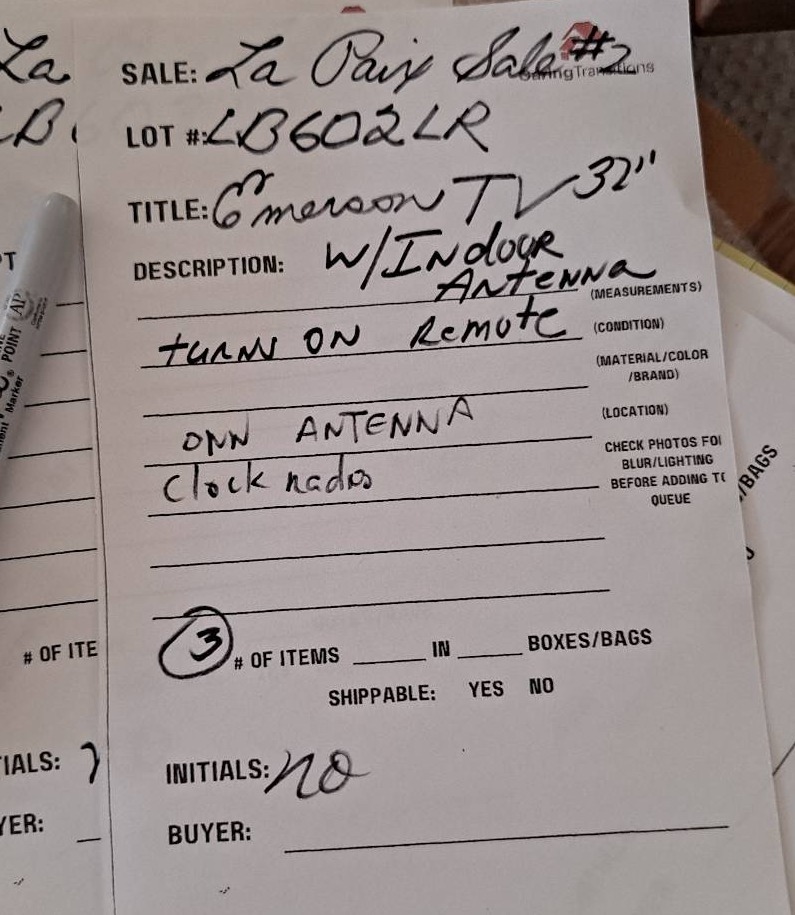 La
SALE: La Paix Sale #2
CaringTransitions
LB
LOT #: LB602LR
TITLE: Emerson TV 32"
DESCRIPTION: W/Indoor
Antenna
(MEASUREMENTS)
turns on Remote
(CONDITION)
(MATERIAL/COLOR
/BRAND)
(LOCATION)
ONN ANTENNA
CHECK PHOTOS FO
BLUR/LIGHTING
BEFORE ADDING T
QUEUE
Clock radio
/BAGS
AP
POINT
Marker
# OF ITE
3 # OF ITEMS ______ IN ______ BOXES/BAGS
SHIPPABLE: YES NO
IALS:
INITIALS: no
YER:
BUYER: